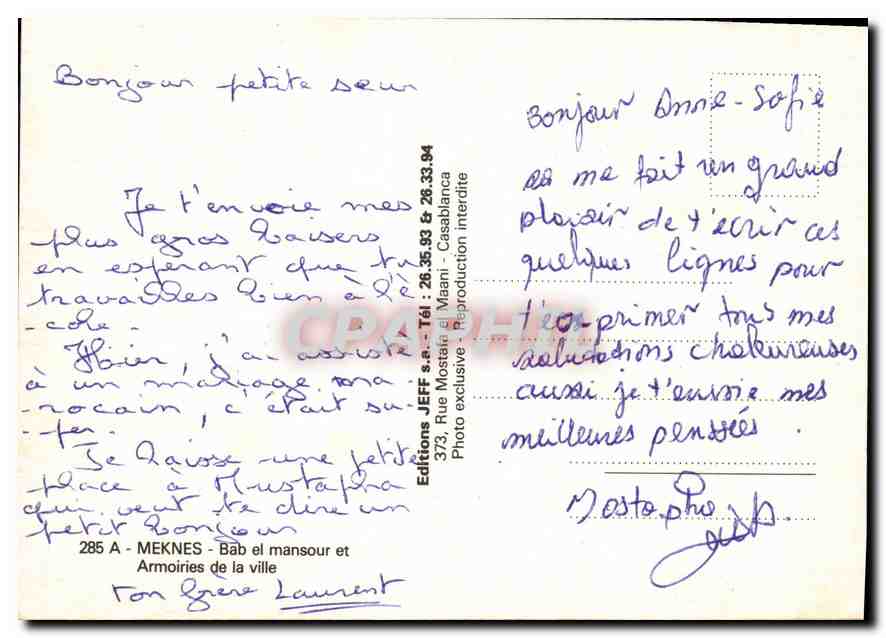 Bonjour petite sœur
Je t'envoie mes
plus gros baisers
en espérant que tu
travailles bien à l'é
-cole.
Hier, j'ai assisté
à un mariage ma-
-rocain, c'était su-
-per.
Je laisse une petite
place à Mustapha
qui veut te dire un
petit bonjour
285 A - MEKNES - Bab el mansour et
Armoiries de la ville
ton frère Laurent
Editions JEFF s.a. - Tél : 26.35.93 & 26.33.94
373, Rue Mostafa el Maani - Casablanca
Photo exclusive - Reproduction interdite
Bonjour Anne-Sofie
sa me fait un grand
plaisir de t'ecrir ces
quelques lignes pour
t'exprimer tous mes
salutations chaleureuses
aussi je t'envoie mes
meilleures penssées.
Mostapha
CPAPHIL